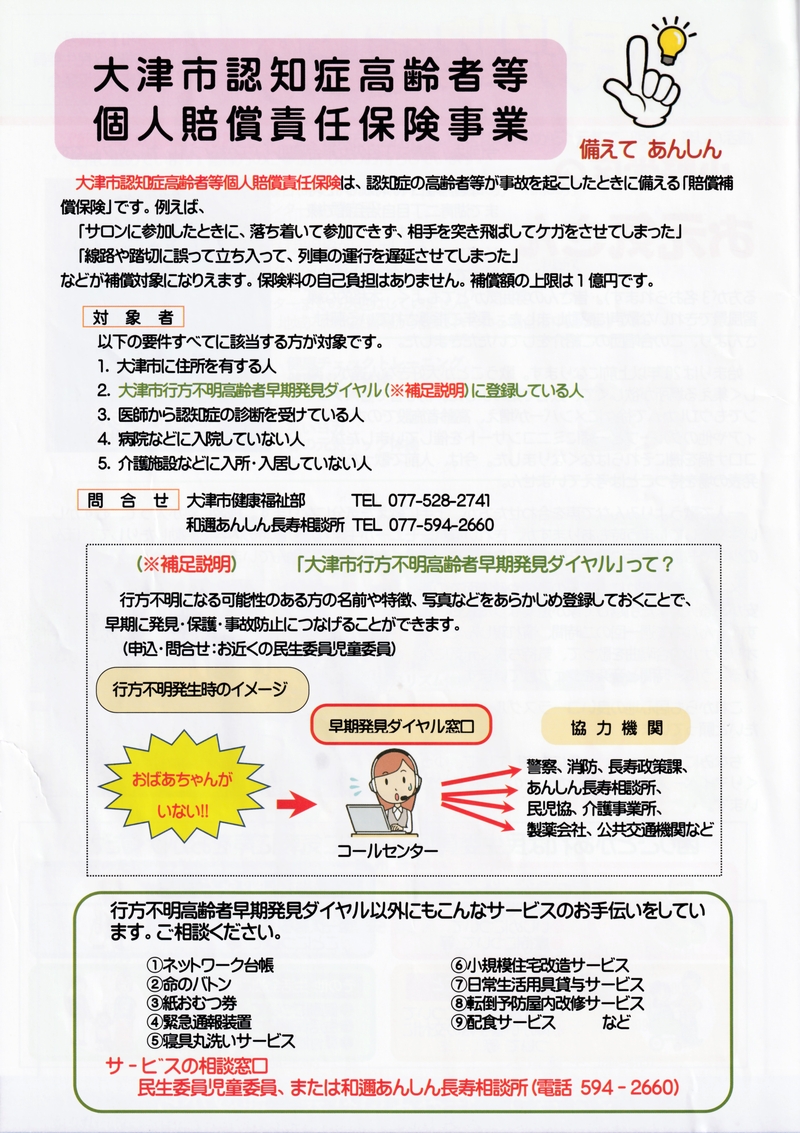 大津市認知症高齢者等
個人賠償責任保険事業
備えて あんしん
大津市認知症高齢者等個人賠償責任保険は、認知症の高齢者等が事故を起こしたときに備える「賠償補
償保険」です。例えば、
「サロンに参加したときに、落ち着いて参加できず、相手を突き飛ばしてケガをさせてしまった」
「線路や踏切に誤って立ち入って、列車の運行を遅延させてしまった」
などが補償対象になりえます。保険料の自己負担はありません。補償額の上限は1億円です。
対 象 者
以下の要件すべてに該当する方が対象です。
1. 大津市に住所を有する人
2. 大津市行方不明高齢者早期発見ダイヤル（※補足説明）に登録している人
3. 医師から認知症の診断を受けている人
4. 病院などに入院していない人
5. 介護施設などに入所・入居していない人
問 合 せ 大津市健康福祉部 TEL 077-528-2741
和邇あんしん長寿相談所 TEL 077-594-2660
（※補足説明） 「大津市行方不明高齢者早期発見ダイヤル」って？
行方不明になる可能性のある方の名前や特徴、写真などをあらかじめ登録しておくことで、
早期に発見・保護・事故防止につなげることができます。
（申込・問合せ：お近くの民生委員児童委員）
行方不明発生時のイメージ
おばあちゃんが
いない!!
早期発見ダイヤル窓口
コールセンター
協 力 機 関
警察、消防、長寿政策課、
あんしん長寿相談所、
民児協、介護事業所、
製薬会社、公共交通機関など
行方不明高齢者早期発見ダイヤル以外にもこんなサービスのお手伝いをしてい
ます。ご相談ください。
①ネットワーク台帳
②命のバトン
③紙おむつ券
④緊急通報装置
⑤寝具丸洗いサービス
⑥小規模住宅改造サービス
⑦日常生活用具貸与サービス
⑧転倒予防屋内改修サービス
⑨配食サービス など
サービスの相談窓口
民生委員児童委員、または和邇あんしん長寿相談所（電話 594－2660）